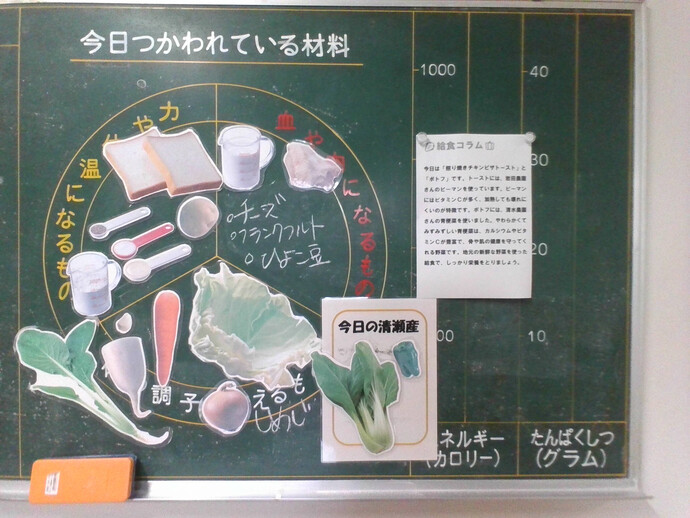 今日つかわれている材料
力や
温になるもの
血や
になるもの
○チーズ
○フランクフルト
○ひよこ豆
調子
えるも
しめじ
1000
40
30
20
00
10
ネルギー
(カロリー)
たんぱくしつ
(グラム)
給食コラム
今日は「照り焼きチキンピザトースト」と
「ポトフ」です。トーストには、岩田農園
さんのピーマンを使っています。ピーマン
にはビタミンCが多く、加熱しても壊れに
くいのが特徴です。ポトフには、清水農園
さんの青梗菜を使いました。やわらかくて
みずみずしい青梗菜は、カルシウムやビタ
ミンCが豊富で、骨や肌の健康を守ってく
れる野菜です。地元の新鮮な野菜を使った
給食で、しっかり栄養をとりましょう。
今日の清瀬産